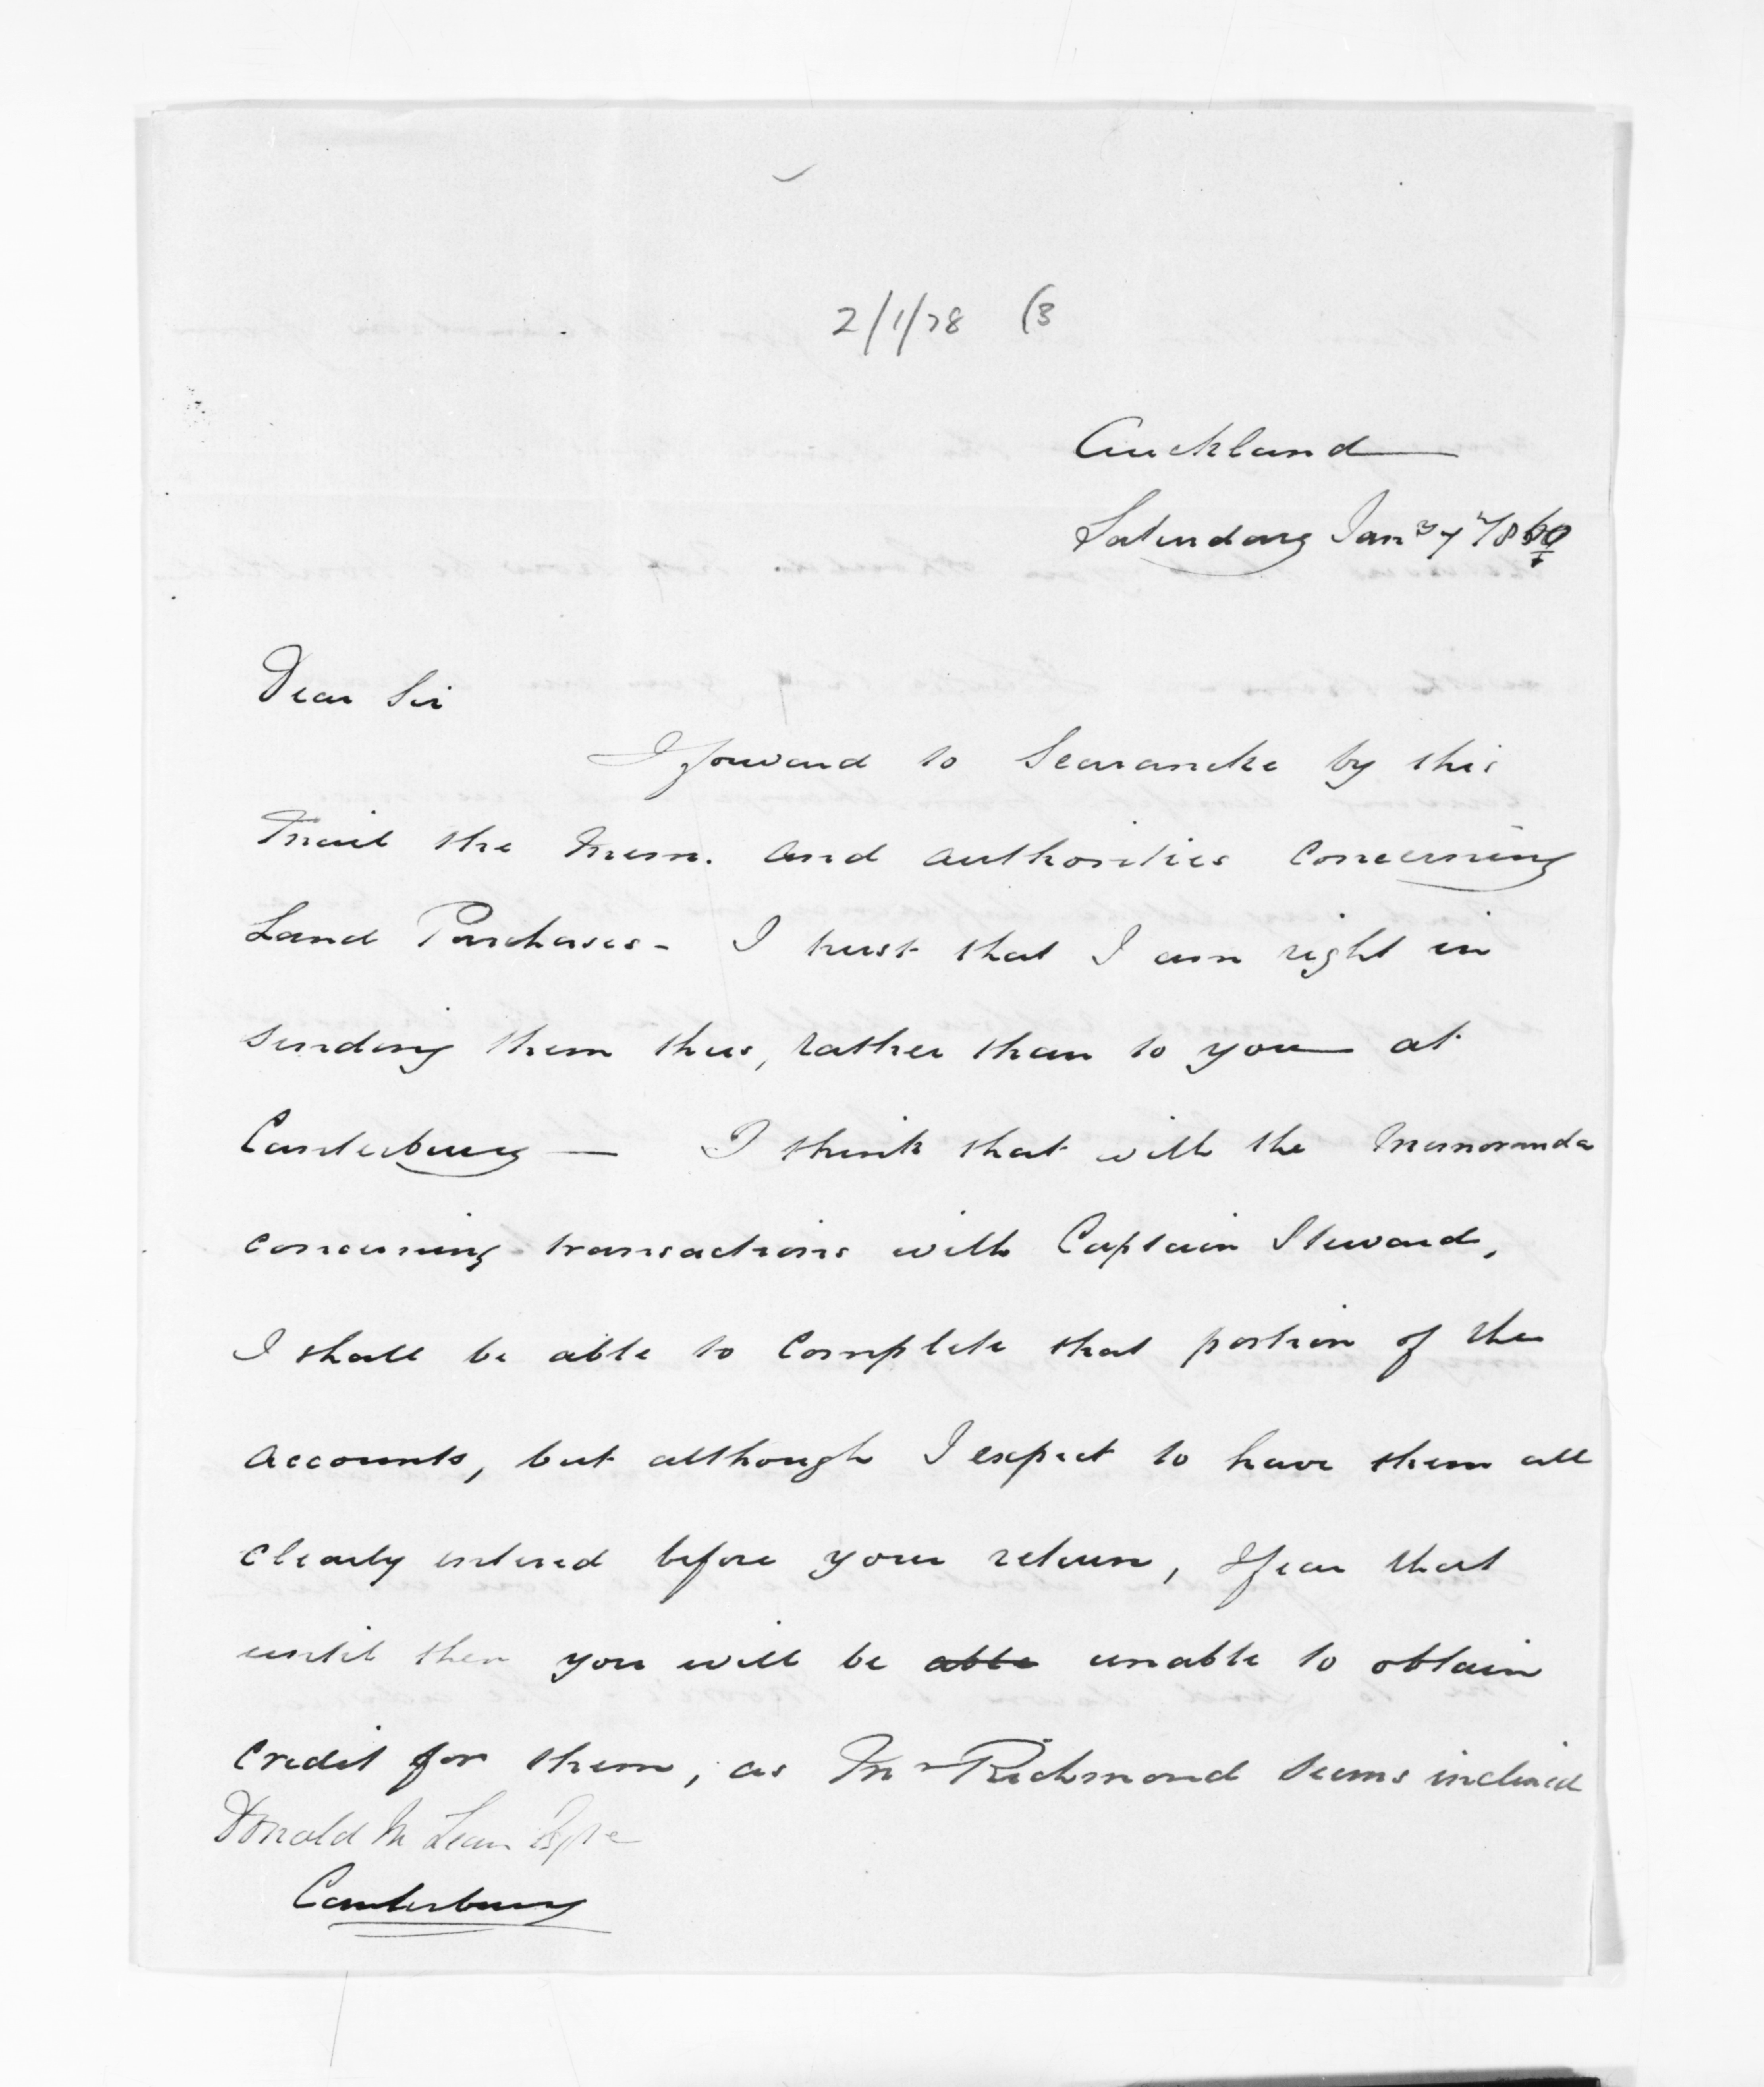 2/1/78 (3
Auckland
Saturday Jany 7th 1860
Dear Sir
I forward to Searancke by this
Mail the Mem. and authorities concerning
Land Purchases - I trust that I am right in
sending them thus, rather than to you at
Canterbury — I think that with the Memoranda
concerning transactions with Captain Steward,
I shall be able to complete that portion of the
accounts, but although I expect to have them all
clearly entered before your return, I fear that
until then you will be able unable to obtain
credit for them, as Mr Richmond seems inclined
Donald McLean Esqre
Canterbury